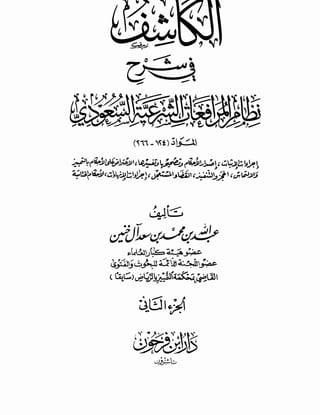 الكاشف
في شرح
نظام المرافعات الشرعية السعودي
المواد (١٢٤ - ٢٦٦)
إجراءات الإثبات، إصدار الأحكام وتصحيحها وتفسيرها، الاعتراض على الأحكام بالتمييز
والالتماس، الحجز والتنفيذ، القضاء المستعجل، إجراءات الإنهاءات، الأحكام الختامية
تأليف
عبد الله بن محمد بن سعد آل خنين
عضو هيئة كبار العلماء
عضو اللجنة الدائمة للبحوث والفتوى
القاضي بمحكمة التمييز بالرياض (سابقا)
الجزء الثاني
دار ابن فرحون
ناشرون